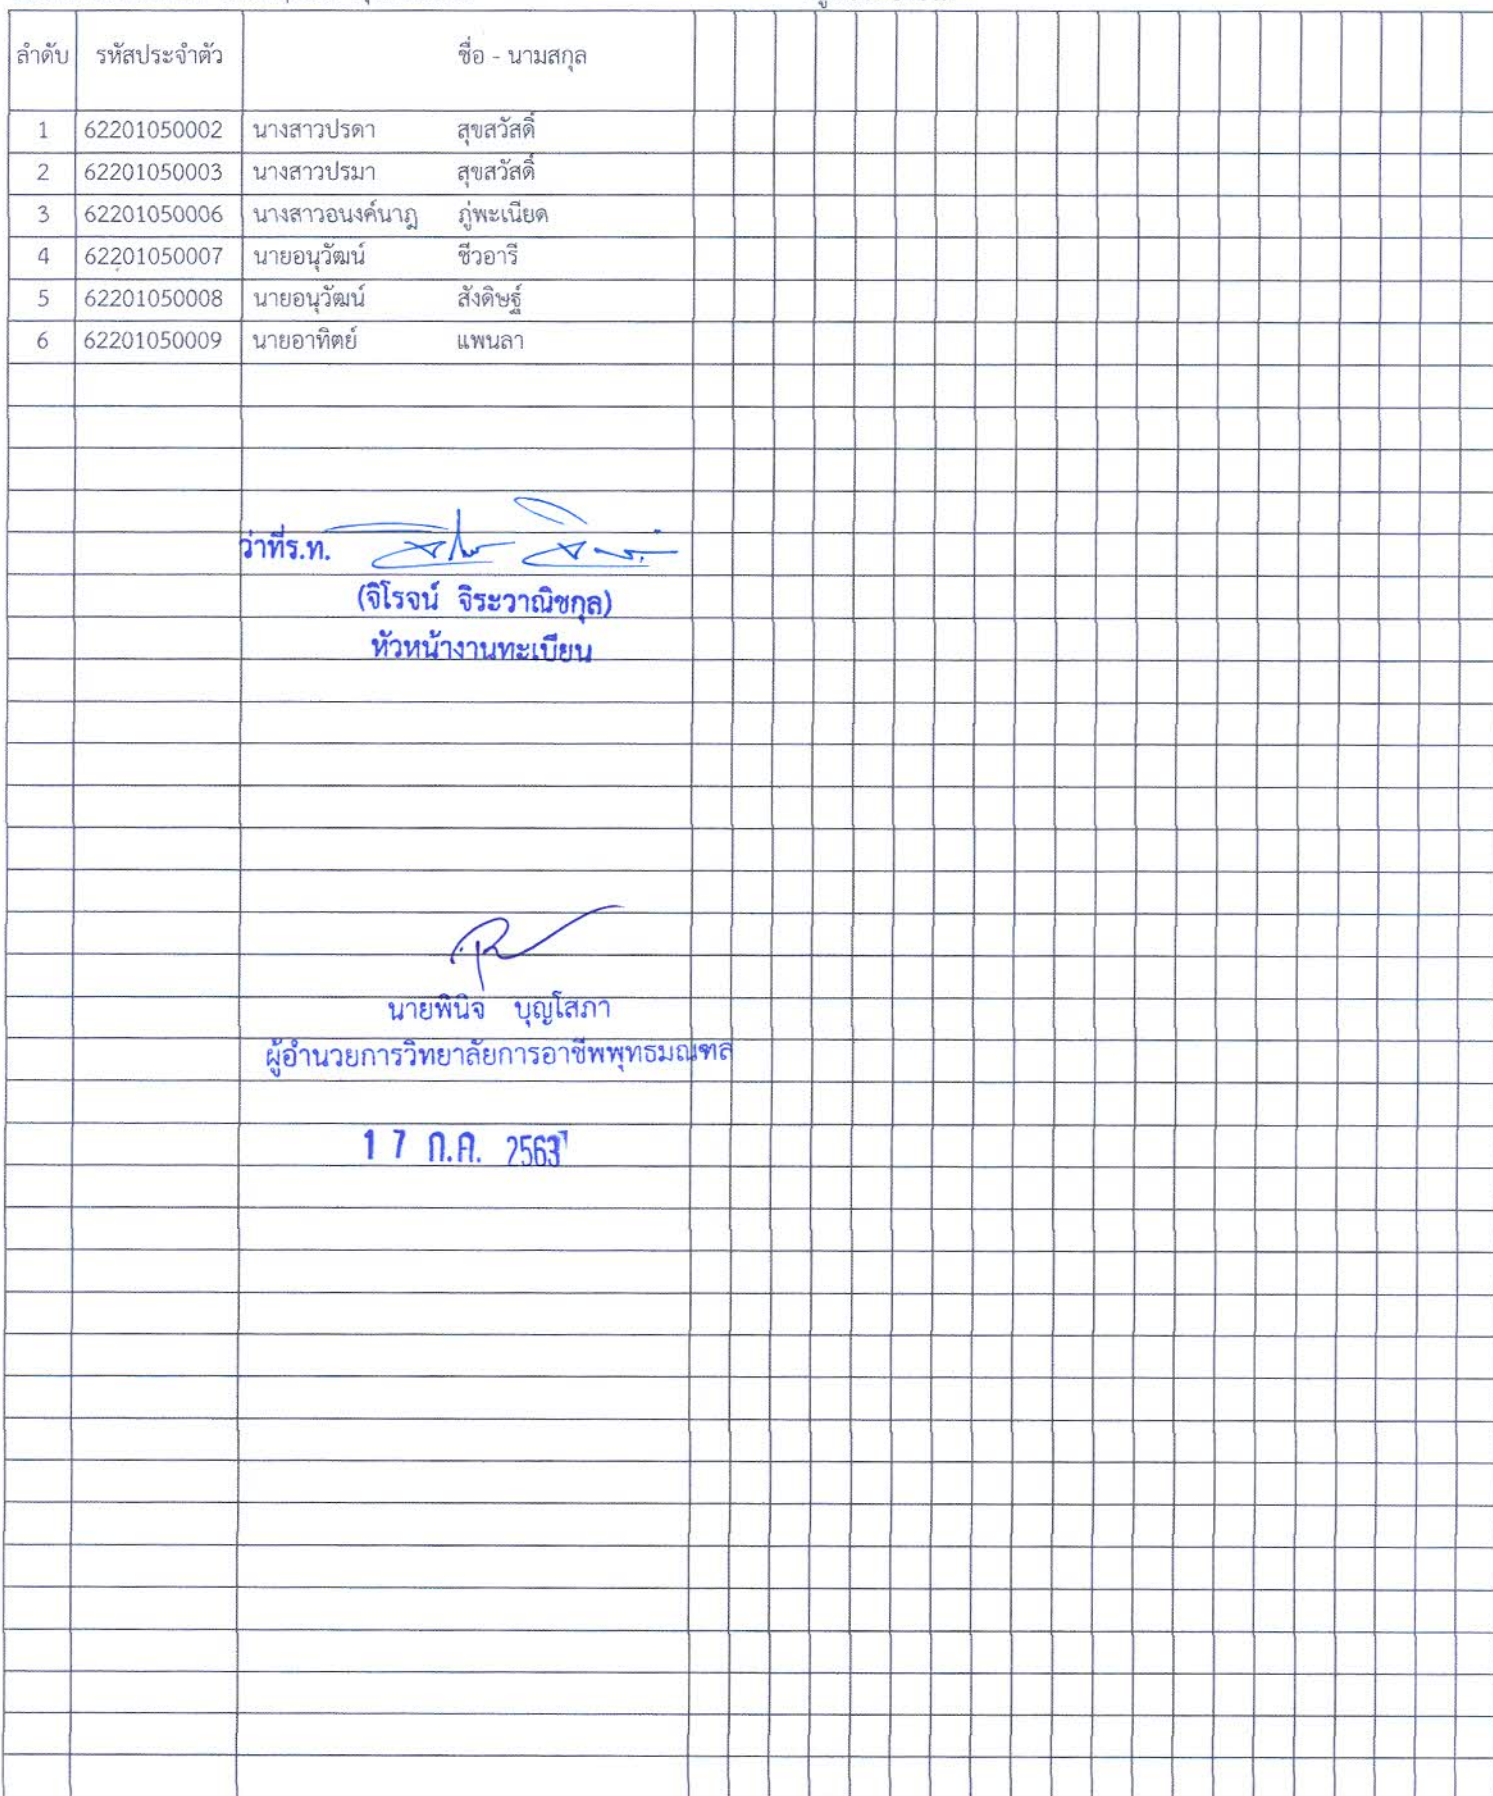 ลำดับ รหัสประจำตัว ชื่อ - นามสกุล
1 62201050002 นางสาวปรดา สุขสวัสดิ์
2 62201050003 นางสาวปรมา สุขสวัสดิ์
3 62201050006 นางสาวอนงค์นาฏ ภู่พะเนียด
4 62201050007 นายอนุวัฒน์ ชีวอารี
5 62201050008 นายอนุวัฒน์ สังดิษฐ์
6 62201050009 นายอาทิตย์ แพนลา
ว่าที่ร.ท.
(จิโรจน์ จิระวาณิชกุล)
หัวหน้างานทะเบียน
นายพินิจ บุญโสภา
ผู้อำนวยการวิทยาลัยการอาชีพพุทธมณฑล
17 ก.ค. 2563